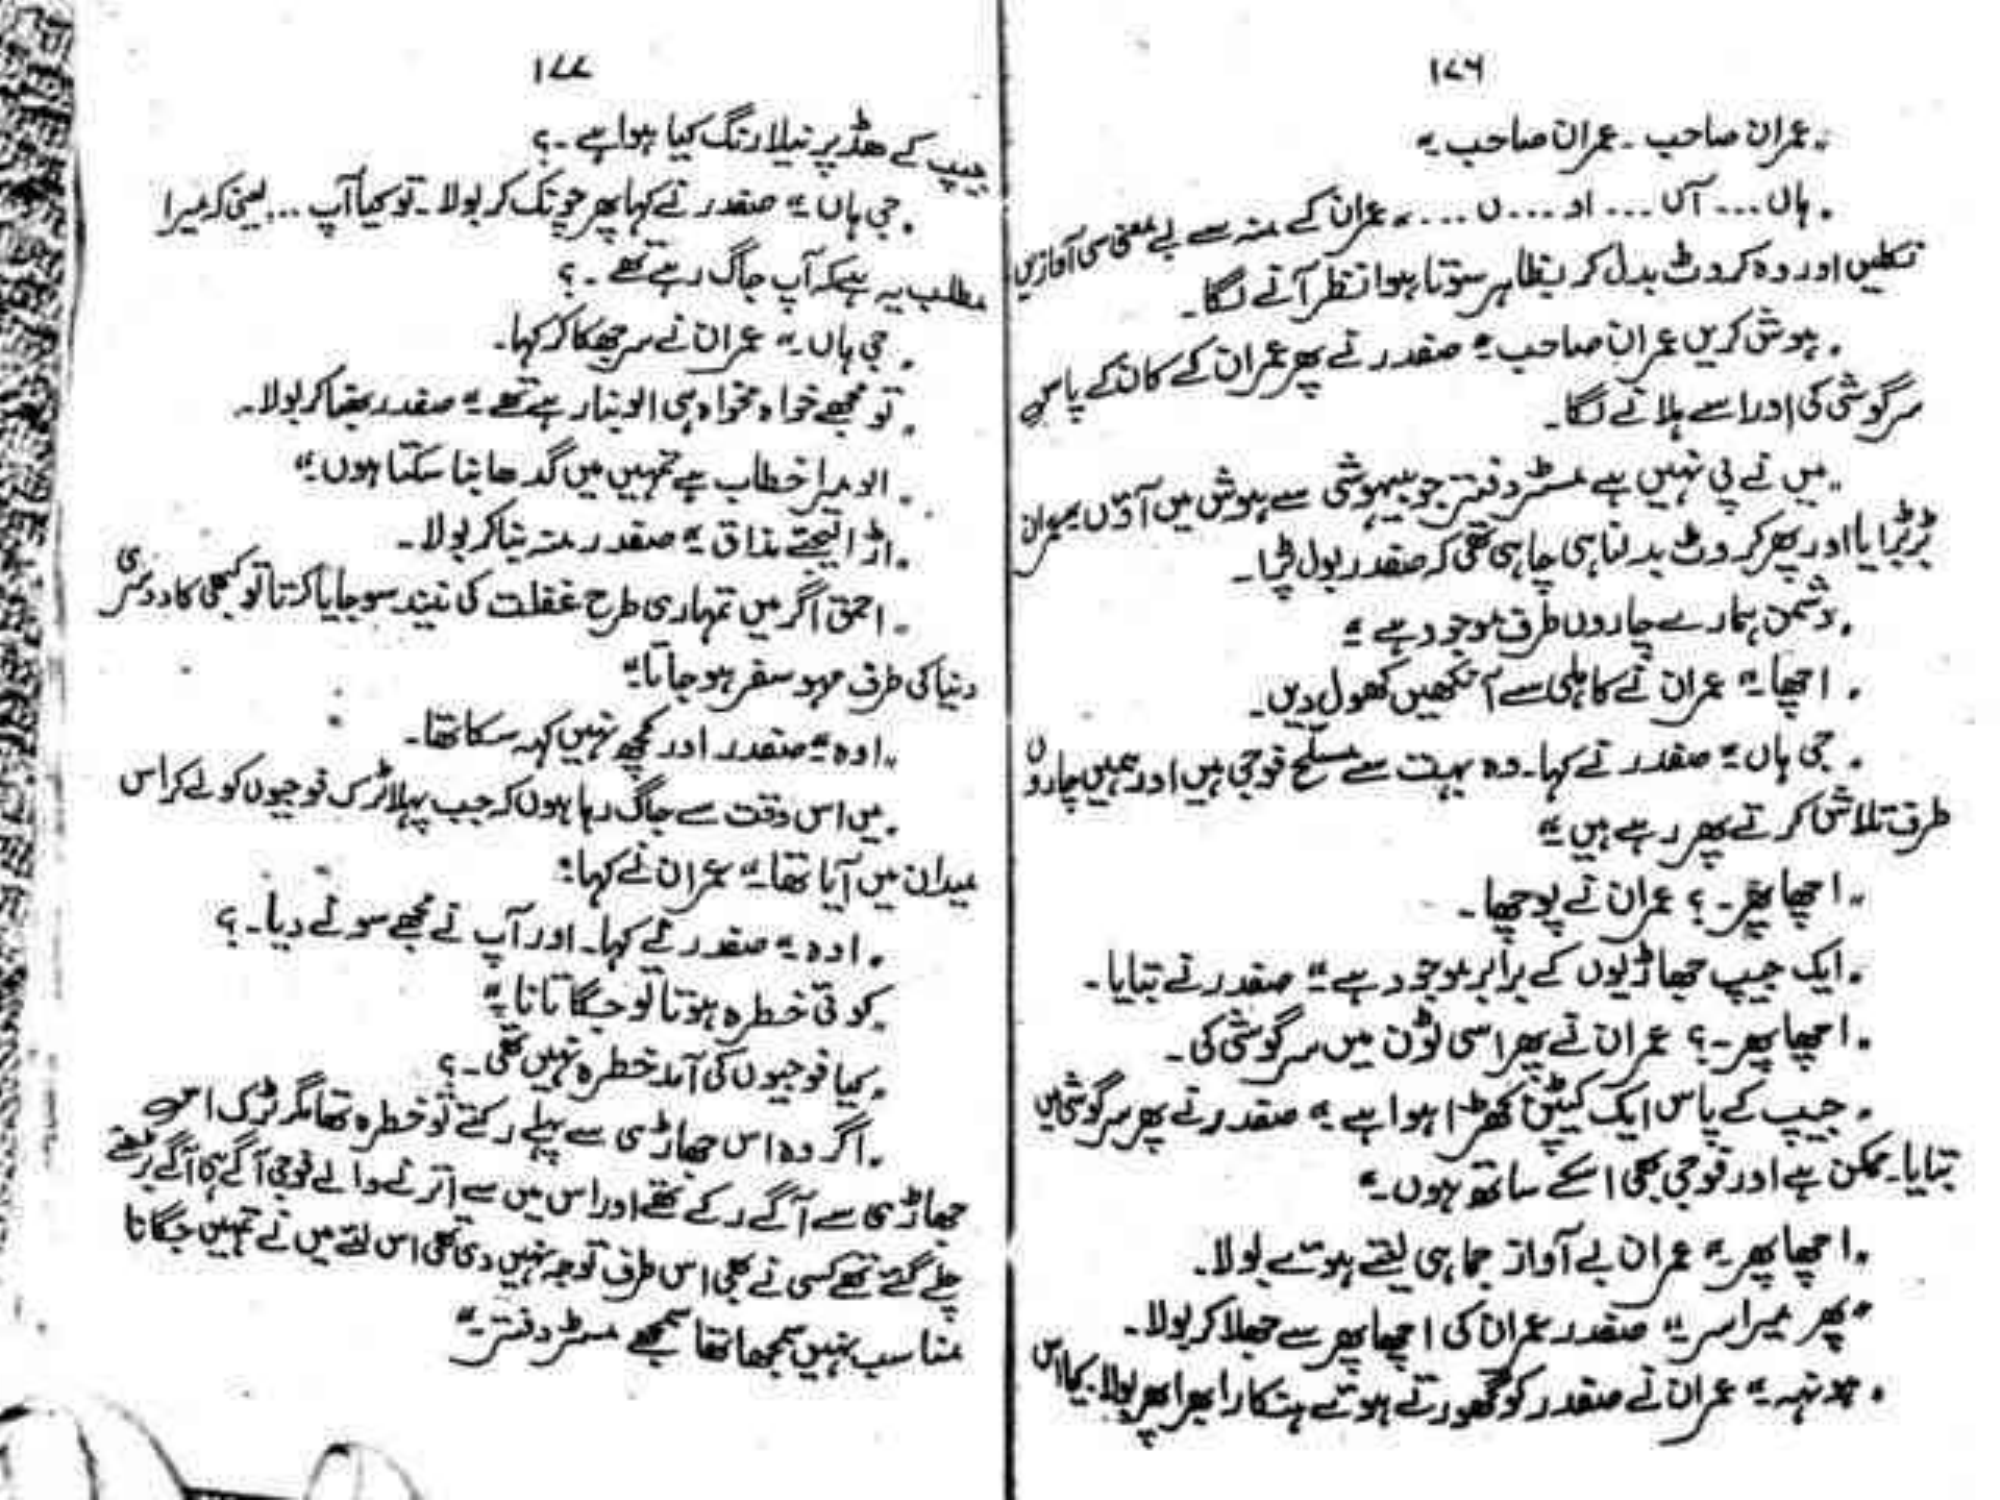 ۱۷۶
"عمران صاحب ۔ عمران صاحب ۔"
"ہاں ... آں ... او ... ں ... ۔" عمران کے منہ سے بے معنی سی آوازیں
نکلیں اور وہ کروٹ بدل کر بظاہر سوتا ہوا نظر آنے لگا۔
"ہوش کریں عمران صاحب ۔" صفدر نے پھر عمران کے کان کے پاس
سرگوشی کی اور اسے ہلانے لگا۔
"میں نے پی نہیں ہے مسٹر دفتر جو بیہوشی سے ہوش میں آؤں ۔" عمران
بڑبڑایا اور پھر کروٹ بدلنا ہی چاہی تھی کہ صفدر بول پڑا۔
"دشمن ہمارے چاروں طرف موجود ہے ۔"
"اچھا ۔" عمران نے کاہلی سے آنکھیں کھول دیں۔
"جی ہاں ۔" صفدر نے کہا۔ وہ بہت سے مسلح فوجی ہیں اور ہمیں چاروں
طرف تلاش کرتے پھر رہے ہیں ۔"
"اچھا پھر ۔؟ عمران نے پوچھا۔
"ایک جیپ جھاڑیوں کے برابر موجود ہے ۔" صفدر نے بتایا۔
"اچھا پھر ۔؟ عمران نے پھر اسی ٹون میں سرگوشی کی۔
"جیپ کے پاس ایک کیپٹن کھڑا ہوا ہے ۔" صفدر نے پھر سرگوشی میں
بتایا۔ ممکن ہے اور فوجی بھی اسکے ساتھ ہوں ۔"
"اچھا پھر ۔" عمران بے آواز جماہی لیتے ہوئے بولا۔
"پھر میرا سر ۔" صفدر عمران کی اچھا پھر سے جھلا کر بولا۔
"ہونہہ ۔" عمران نے صفدر کو گھورتے ہوئے ہنکارا بھرا پھر بولا۔ کیا اس
۱۷۷
جیپ کے ھڈ پر نیلا رنگ کیا ہوا ہے ۔؟
"جی ہاں ۔" صفدر نے کہا پھر چونک کر بولا۔ تو کیا آپ ... یعنی کہ میرا
مطلب یہ ہے کہ آپ جاگ رہے تھے ۔؟
"جی ہاں ۔" عمران نے سر جھکا کر کہا۔
"تو مجھے خواہ مخواہ ہی الو بنا رہے تھے ۔" صفدر بھنا کر بولا۔
"الو میرا خطاب ہے تمہیں میں گدھا بنا سکتا ہوں ۔"
"اڑا لیجئے مذاق ۔" صفدر منہ بنا کر بولا۔
"احمق اگر میں تمہاری طرح غفلت کی نیند سو جایا کرتا تو کبھی کا دوسری
دنیا کی طرف مہو سفر ہو جاتا ۔"
"اوہ ۔" صفدر اور کچھ نہیں کہہ سکا تھا۔
"میں اس وقت سے جاگ رہا ہوں کہ جب پہلا ٹرک فوجیوں کو لے کر اس
میدان میں آیا تھا ۔" عمران نے کہا:
"اوہ ۔" صفدر نے کہا۔ اور آپ نے مجھے سونے دیا ۔؟
"کوئی خطرہ ہوتا تو جگاتا نا ۔"
"کیا فوجیوں کی آمد خطرہ نہیں تھی ۔؟
"اگر وہ اس جھاڑی سے پہلے رکتے تو خطرہ تھا مگر ٹرک اس
جھاڑی سے آگے رکے تھے اور اس میں سے اترنے والے فوجی آگے ہی آگے بڑھتے
چلے گئے تھے کسی نے بھی اس طرف توجہ نہیں دی تھی اس لئے میں نے تمہیں جگانا
مناسب نہیں سمجھا تھا سمجھے مسٹر دفتر ۔"